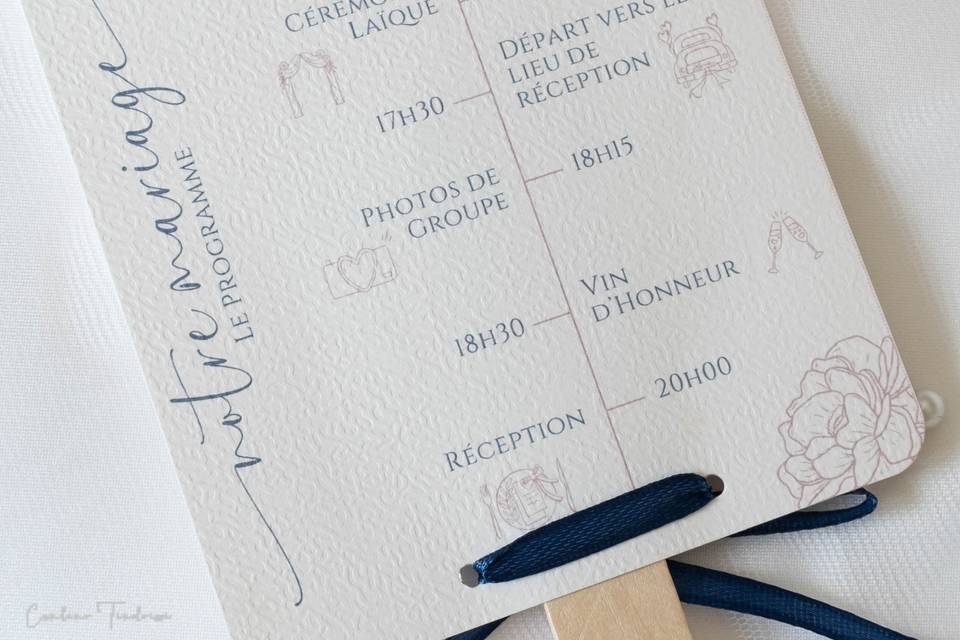 notre mariage
LE PROGRAMME
LAÏQUE
DÉPART VERS LE
LIEU DE
RÉCEPTION
17H30
18H15
PHOTOS DE
GROUPE
VIN
D'HONNEUR
18H30
20H00
RÉCEPTION